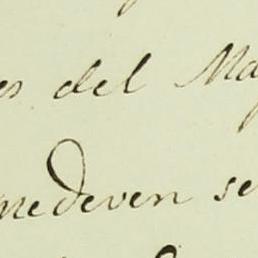 es del Ma
medeven se